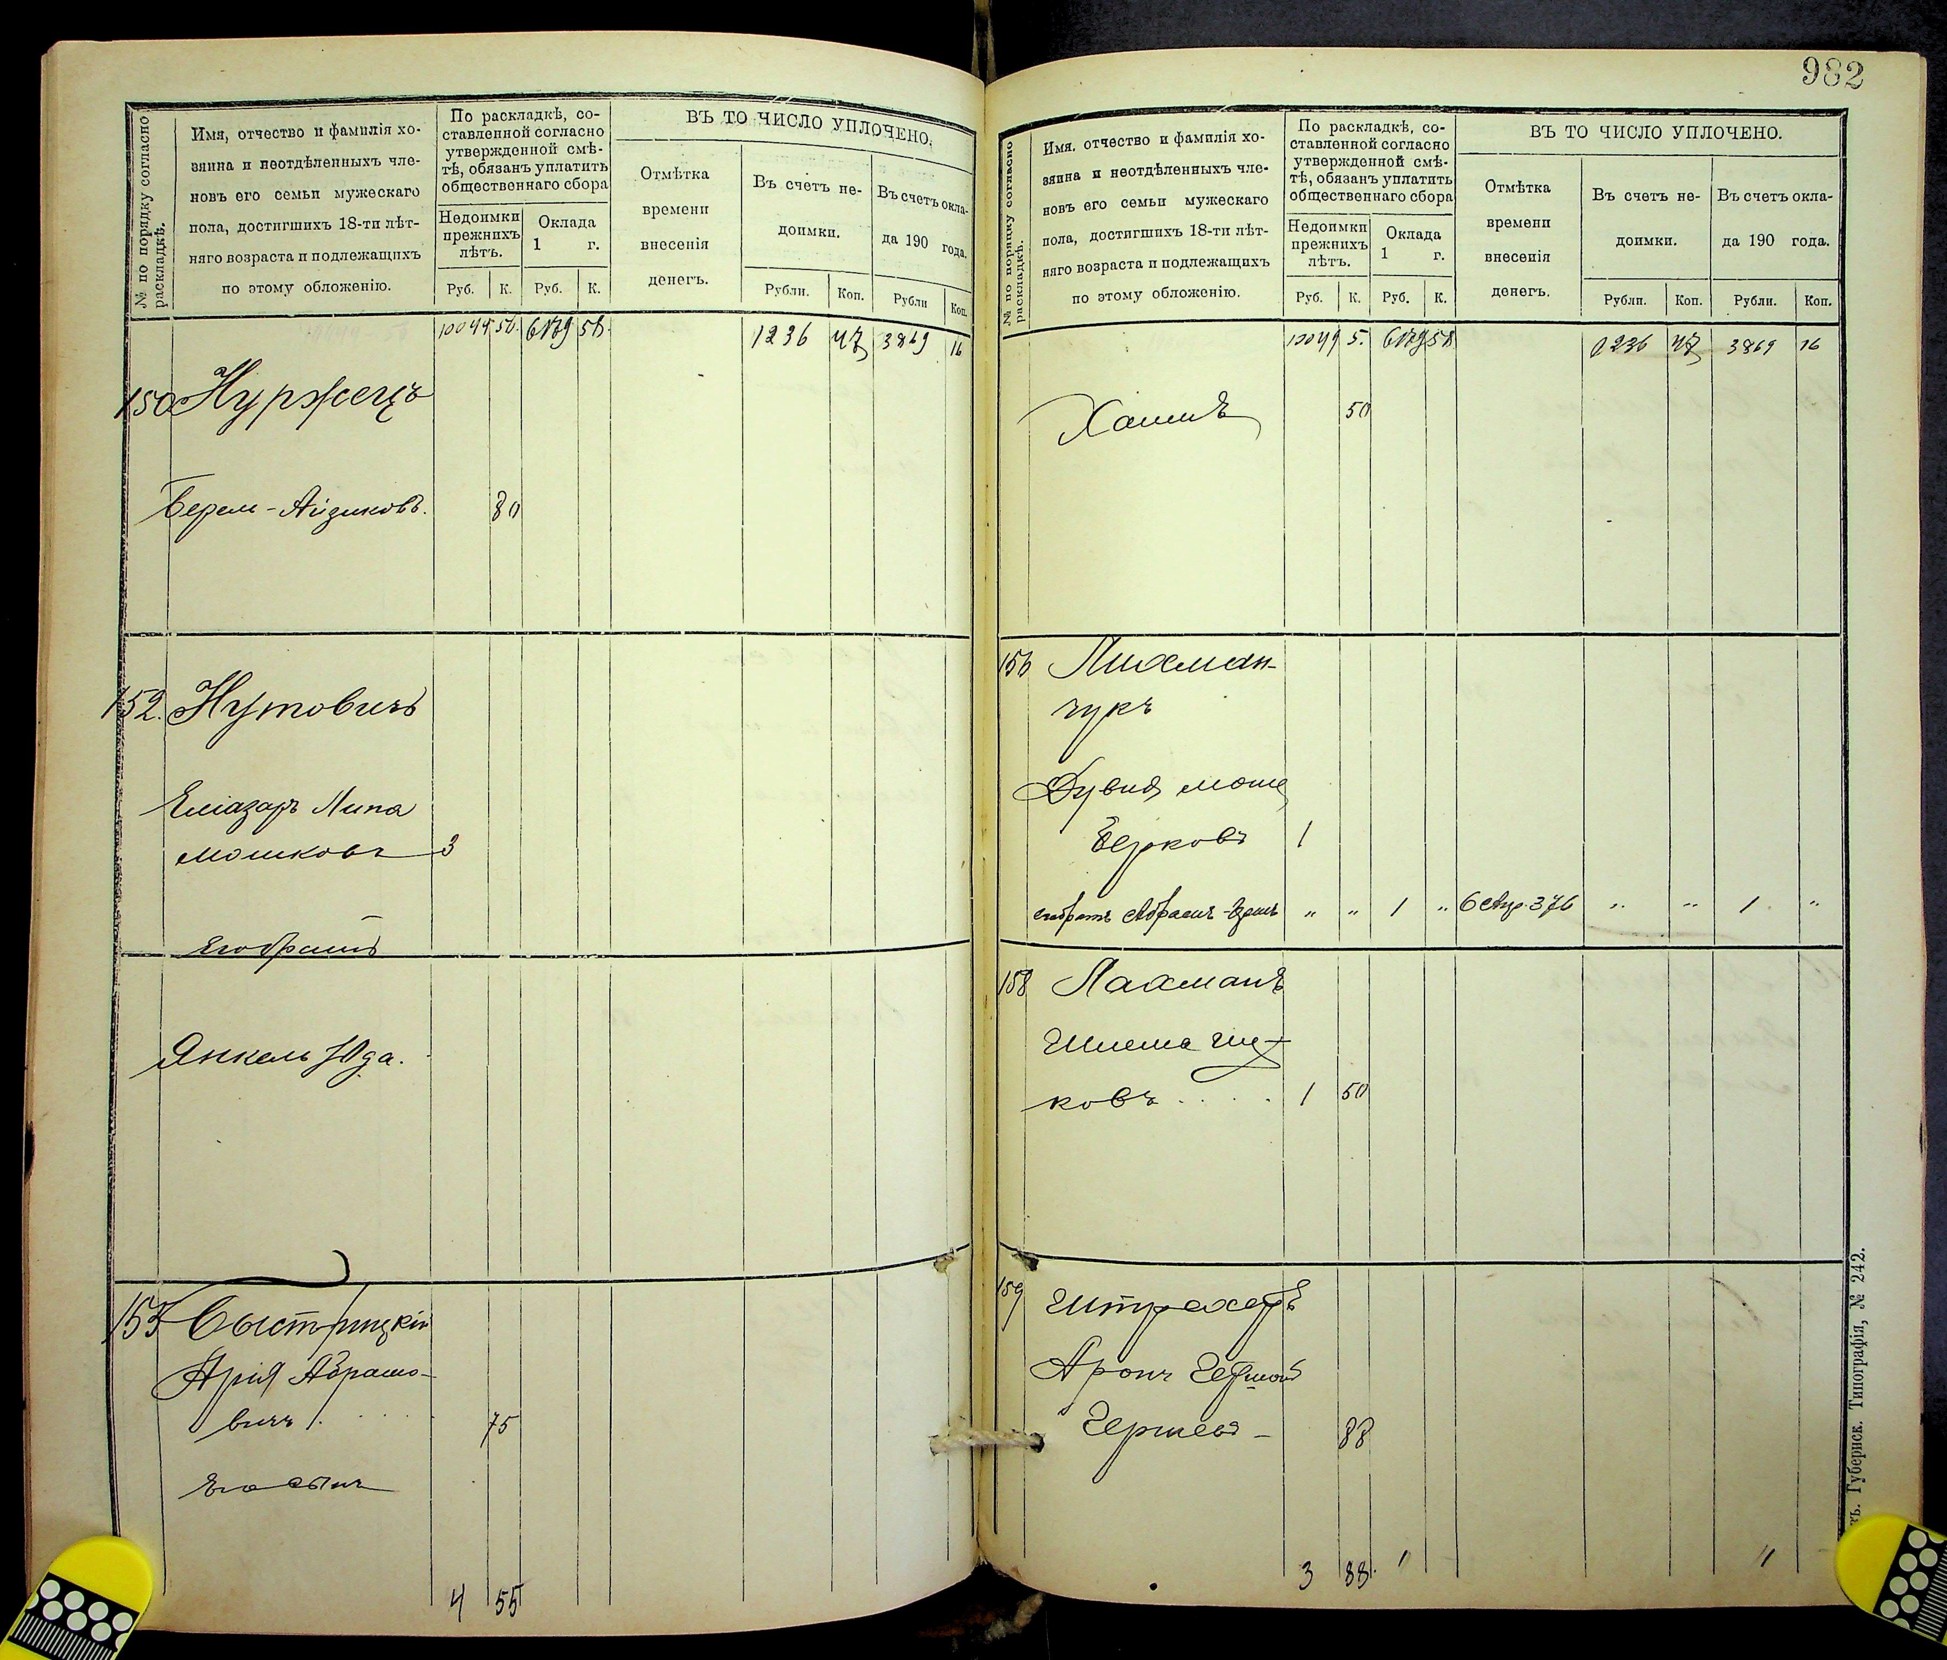 982
№ по порядку согласно раскладкѣ.
Имя, отчество и фамилія хо-
зяина и неотдѣленныхъ чле-
новъ его семьи мужескаго
пола, достигшихъ 18-ти лѣт-
няго возраста и подлежащихъ
по этому обложенію.
По раскладкѣ, со-
ставленной согласно
утвержденной смѣ-
тѣ, обязанъ уплатить
общественнаго сбора
Недоимки
прежнихъ
лѣтъ.
Оклада
1 г.
Руб. К. Руб. К.
ВЪ ТО ЧИСЛО УПЛОЧЕНО.
Отмѣтка
времени
внесенія
денегъ.
Въ счетъ не-
доимки.
Въ счетъ окла-
да 190 года.
Рубли. Коп. Рубли Коп.
1236 47 3869 16
150 Нуржецъ
Берель-Айзиковъ. 80
152. Нутовичъ
Еліазаръ Липа
Мошковъ 3
Его братъ
Янкель Юда.
155 Быстрицкій
Арія Абрамо-
вичъ 75
Его сынъ
4 55
№ по порядку согласно раскладкѣ.
Имя, отчество и фамилія хо-
зяина и неотдѣленныхъ чле-
новъ его семьи мужескаго
пола, достигшихъ 18-ти лѣт-
няго возраста и подлежащихъ
по этому обложенію.
По раскладкѣ, со-
ставленной согласно
утвержденной смѣ-
тѣ, обязанъ уплатить
общественнаго сбора
Недоимки
прежнихъ
лѣтъ.
Оклада
1 г.
Руб. К. Руб. К.
ВЪ ТО ЧИСЛО УПЛОЧЕНО.
Отмѣтка
времени
внесенія
денегъ.
Въ счетъ не-
доимки.
Въ счетъ окла-
да 190 года.
Рубли. Коп. Рубли. Коп.
1236 47 3869 16
50
156 Лихман-
чукъ
Дувидъ Мошe
Берковъ 1
его братъ Абрамъ " " 1 " 6 Апр. 376 " " 1 "
158 Лахманъ
Шлема
ковъ . . . . 1 50
159
Аронъ
88
3 88 " "
Губернск. Типографія, № 242.